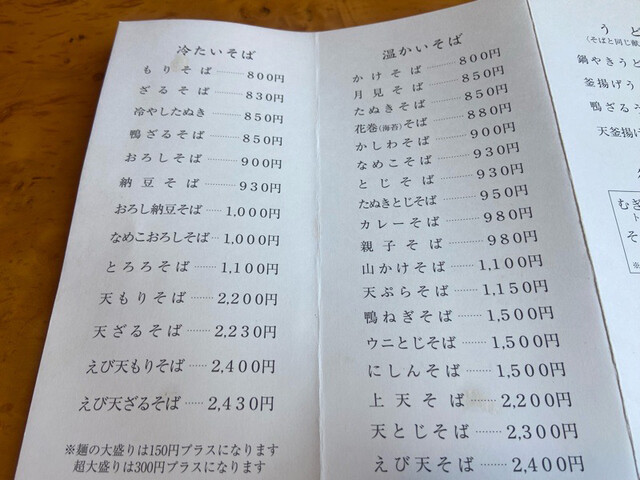 冷たいそば
もりそば 800円
ざるそば 830円
冷やしたぬき 850円
鴨ざるそば 850円
おろしそば 900円
納豆そば 930円
おろし納豆そば 1,000円
なめこおろしそば 1,000円
とろろそば 1,100円
天もりそば 2,200円
天ざるそば 2,230円
えび天もりそば 2,400円
えび天ざるそば 2,430円
※麺の大盛りは150円プラスになります
超大盛りは300円プラスになります
温かいそば
かけそば 800円
月見そば 850円
たぬきそば 850円
花巻(海苔)そば 880円
かしわそば 900円
なめこそば 930円
とじそば 930円
たぬきとじそば 950円
カレーそば 980円
親子そば 980円
山かけそば 1,100円
天ぷらそば 1,150円
鴨ねぎそば 1,500円
ウニとじそば 1,500円
にしんそば 1,500円
上天そば 2,200円
天とじそば 2,300円
えび天そば 2,400円
うど
(そばと同じ献
鍋やきうど
釜揚げう
鴨ざる
天釜揚げ
むぎ
そ